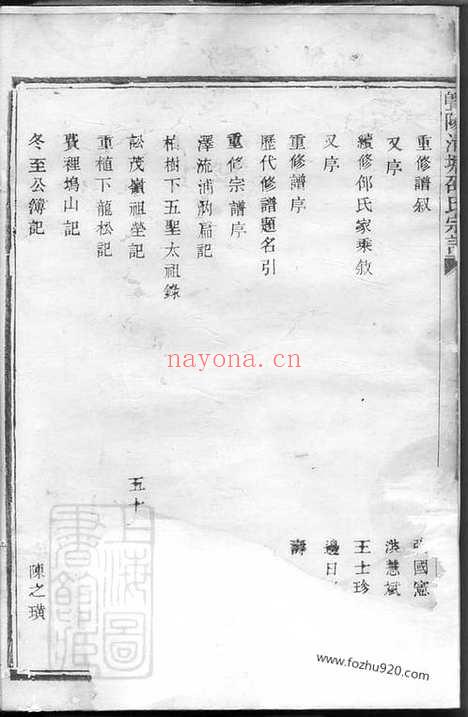 邵氏宗
重修譜叙 國憲
又序 洪慧斌
續修邵氏家乘敘 王士珍
又序 邊日
重修譜序 壽
歷代修譜題名引
重修宗譜序
澤流浦汭扁記
柏樹下五聖太祖錄
訟茂嶺祖塋記 五十
重植下龍松記
費裡塢山記
冬至公簿記 陳之璜
上海圖書館藏
nayona.cn
www.fozhu920.com